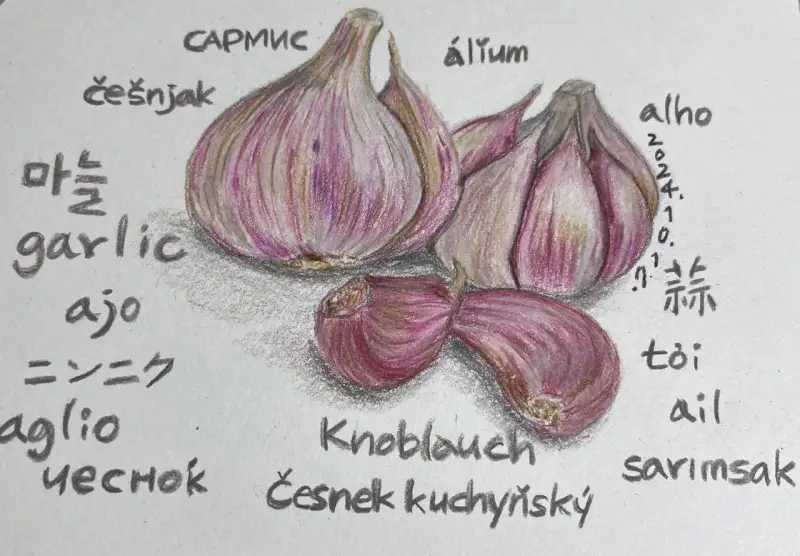 САРМИС
álium
češnjak
alho
2024.10.17.
마늘
garlic
蒜
ajo
tỏi
ニンニク
ail
aglio
Knoblauch
sarımsak
чеснок
Česnek kuchyňský